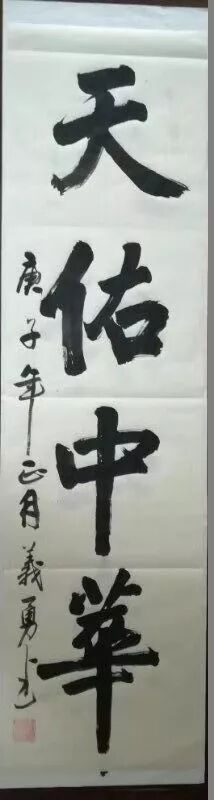 天佑中華
庚子年正月義勇书